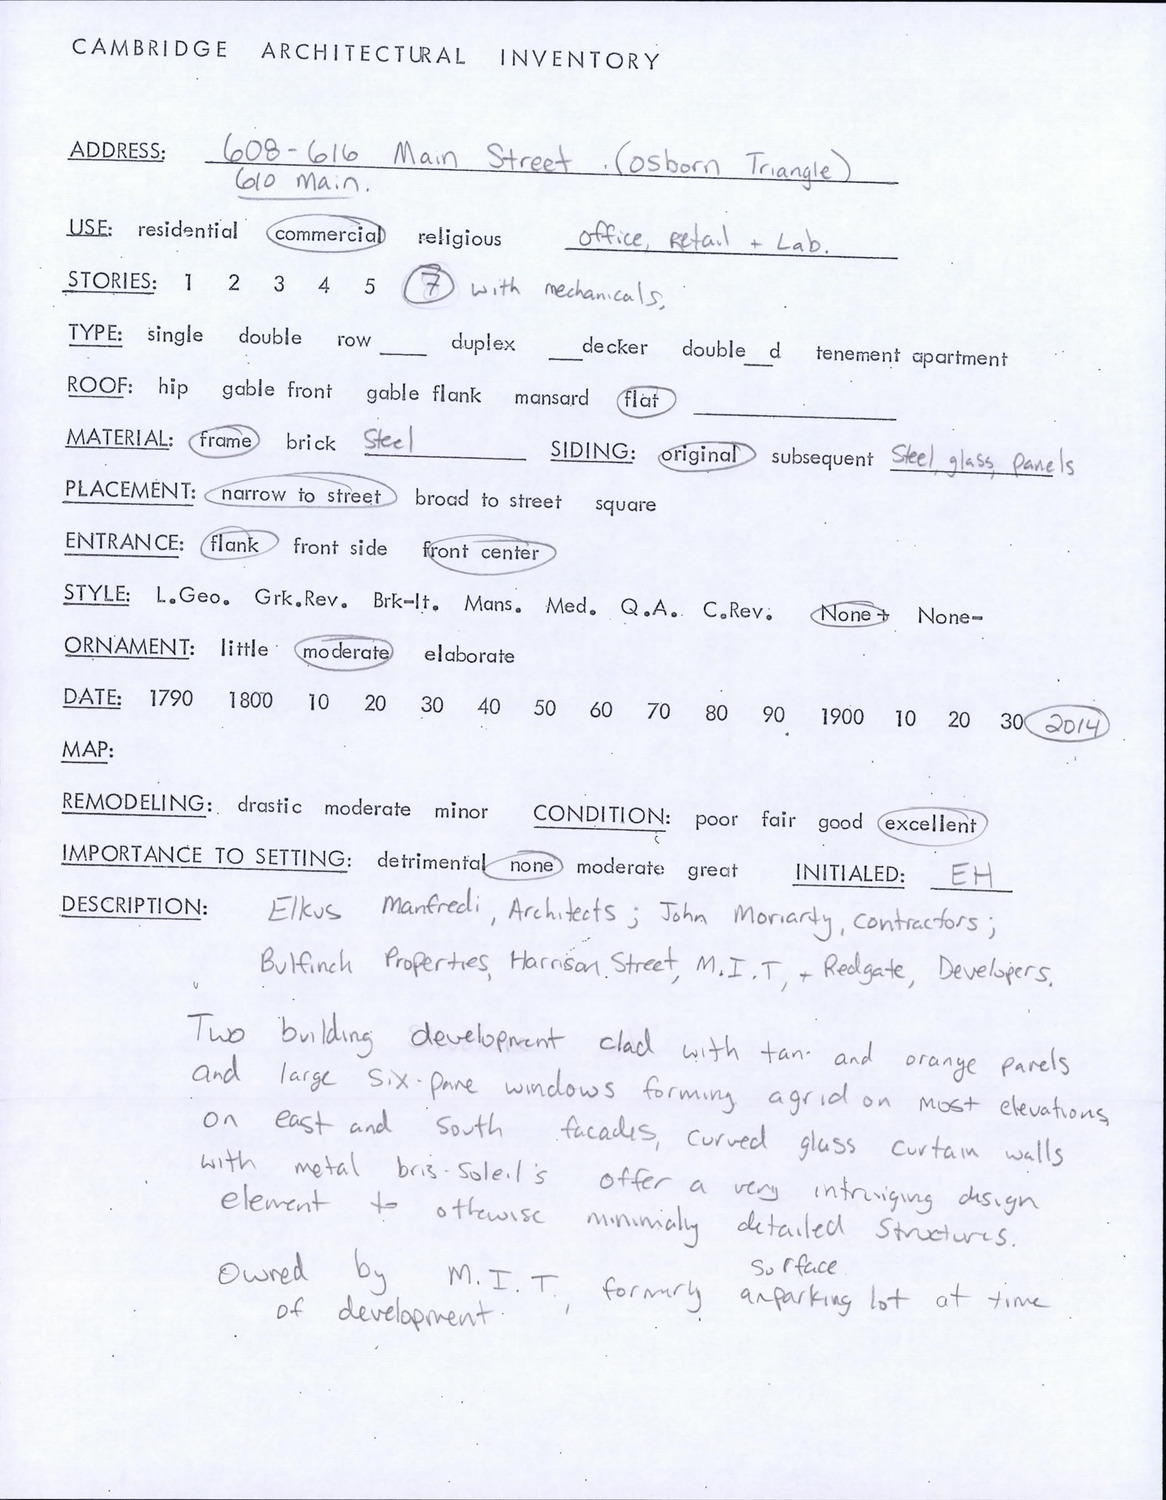 CAMBRIDGE ARCHITECTURAL INVENTORY
ADDRESS: 608-616 Main Street. (Osborn Triangle)
610 Main.
USE: residential commercial religious office, retail + Lab.
STORIES: 1 2 3 4 5 7 with mechanicals.
TYPE: single double row ___ duplex ___decker double__d tenement apartment
ROOF: hip gable front gable flank mansard flat ____________
MATERIAL: frame brick Steel SIDING: original subsequent Steel, glass, panels
PLACEMENT: narrow to street broad to street square
ENTRANCE: flank front side front center
STYLE: L.Geo. Grk.Rev. Brk-It. Mans. Med. Q.A. C.Rev. None+ None-
ORNAMENT: little moderate elaborate
DATE: 1790 1800 10 20 30 40 50 60 70 80 90 1900 10 20 30 2014
MAP:
REMODELING: drastic moderate minor CONDITION: poor fair good excellent
IMPORTANCE TO SETTING: detrimental none moderate great INITIALED: EH
DESCRIPTION: Elkus Manfredi, Architects; John Moriarty, contractors;
Bulfinch Properties, Harrison Street, M.I.T, + Redgate, Developers.
Two building development clad with tan and orange panels
and large six-pane windows forming a grid on most elevations,
on east and south facades, curved glass curtain walls
with metal bris-soleil's offer a very intruiging design
element to otherwise minimially detailed structures.
Owned by M.I.T., formerly a surface parking lot at time
of development.